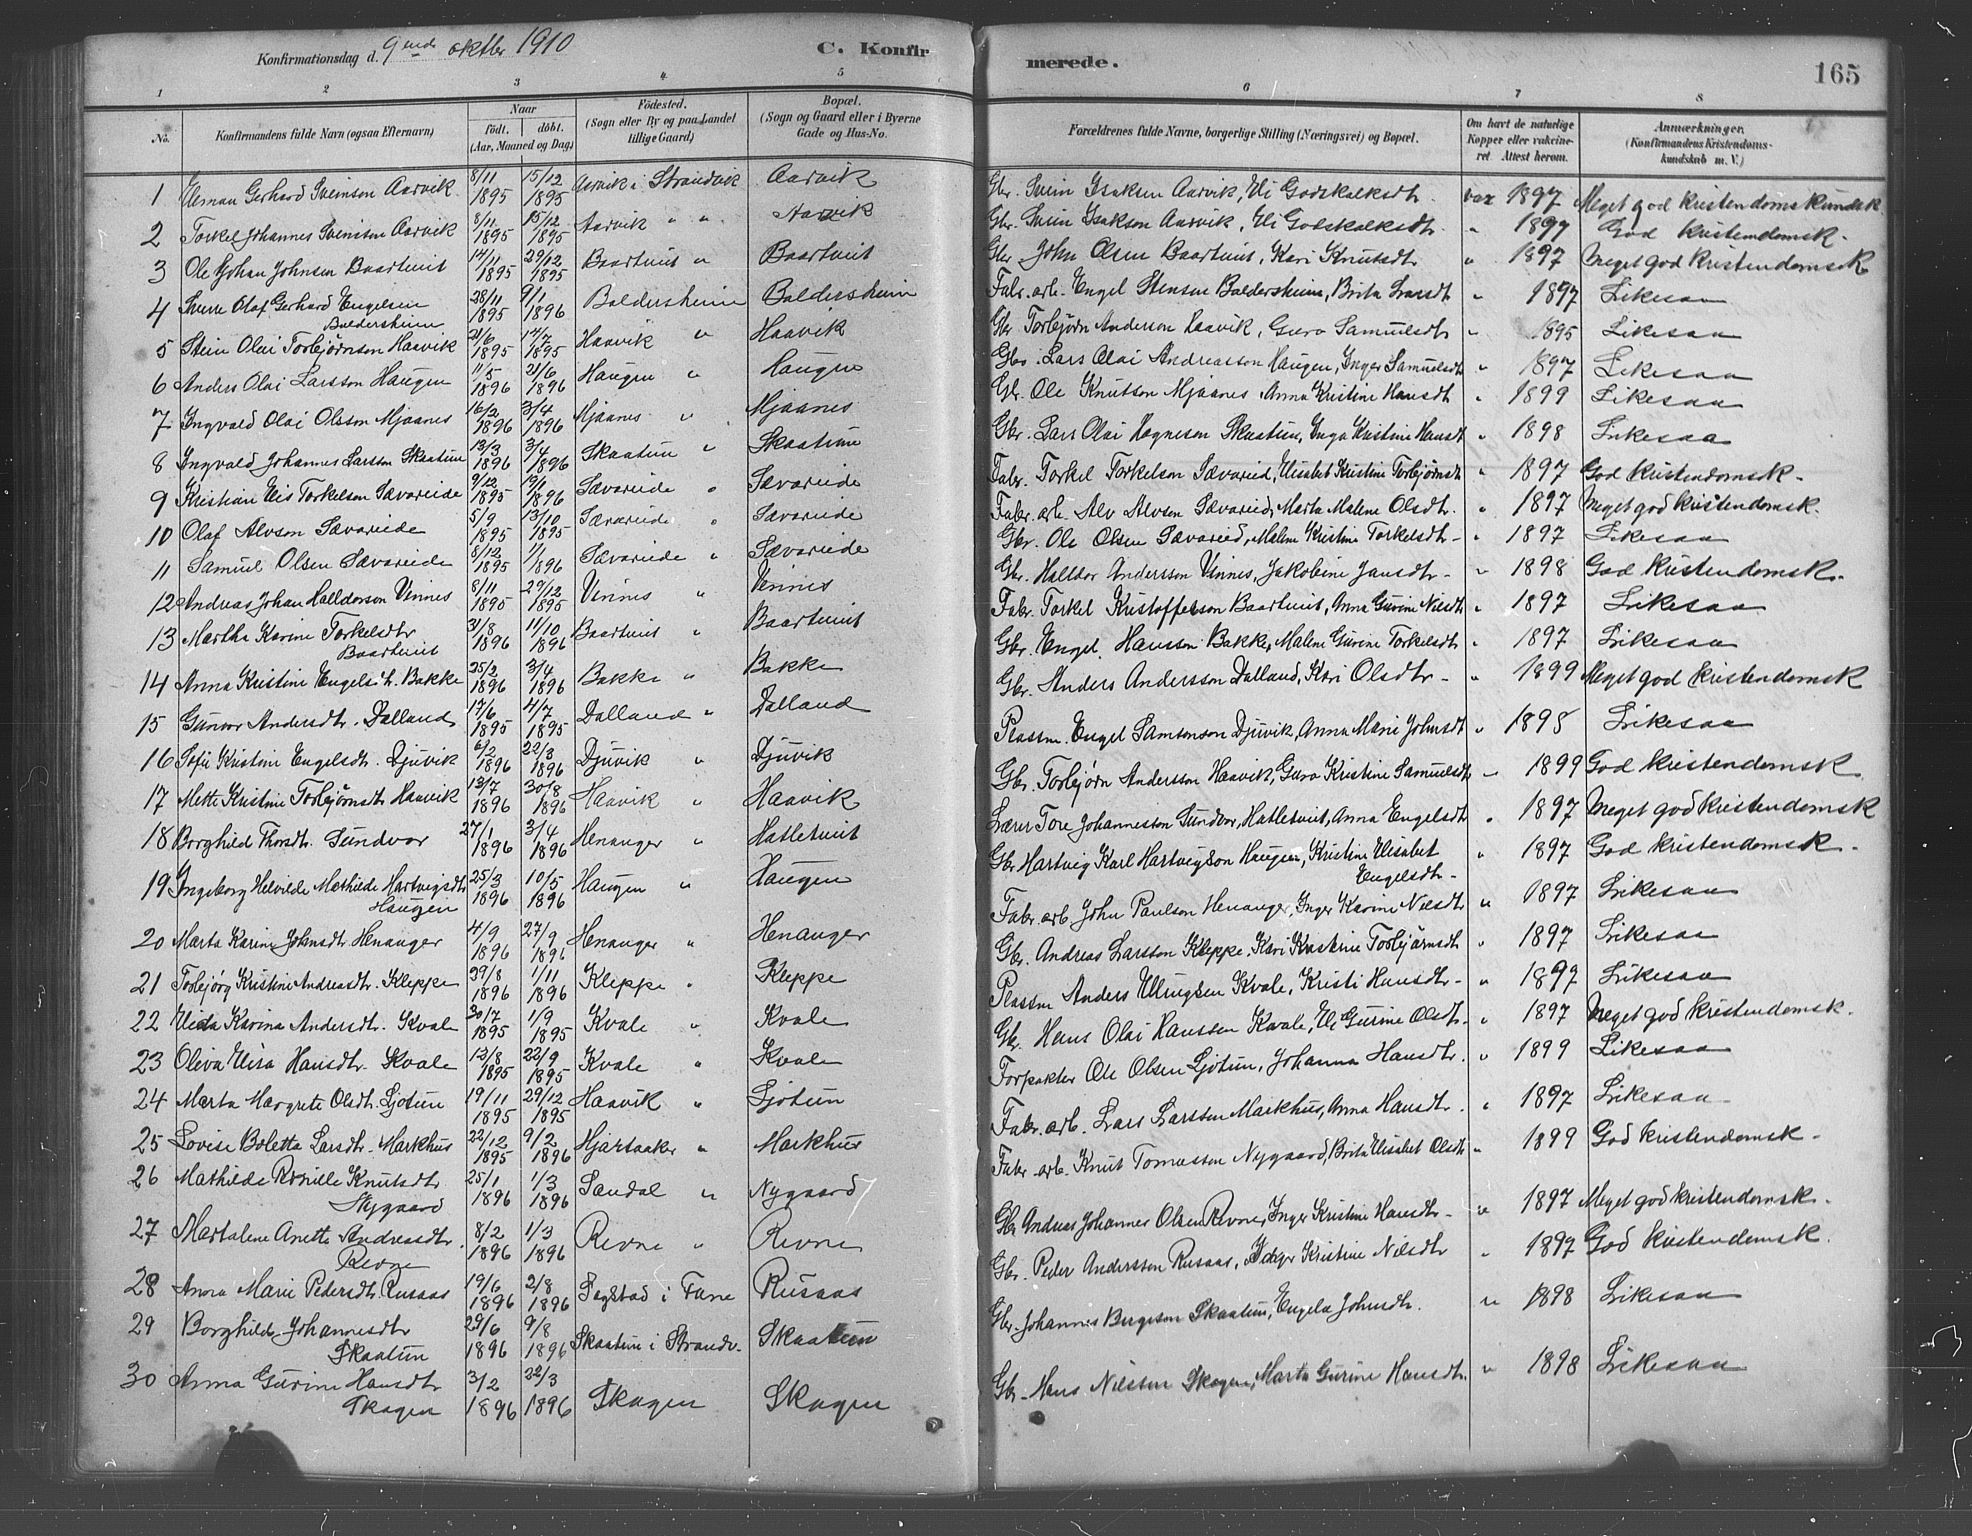 Konfirmationsdag d. 9ende oktbr 1910 C. Konfirmerede. 165
1 2 3 4 5 6 7 8
No. Konfirmandens fulde Navn (ogsaa Efternavn) Naar født. døbt. (Aar, Maaned og Dag) Fødested. (Sogn eller By og paa Landet tillige Gaard) Bopæl. (Sogn og Gaard eller i Byerne Gade og Hus-No. Forældrenes fulde Navne, borgerlige Stilling (Næringsvei) og Bopæl. Om havt de naturlige Kopper eller vakcineret Attest herom. Anmærkninger. (Konfirmandens Kristendomskundskab m. V.)
1 Herman Gerhard Sveinson Aarvik 8/11 1895 15/12 1895 Aarvik i Strandvik Aarvik Gbr. Svein Isaksen Aarvik, Eli Godskalksdt. vax 1897 Meget god kristendomskundsk.
2 Torkel Johannes Sveinson Aarvik 8/11 1895 15/12 1895 Aarvik " " Aarvik Gbr. Svein Isakson Aarvik, Eli Godskalksdt. " 1897 God kristendomsk.
3 Ole Johan Johnsen Baartveit 14/11 1895 29/12 1895 Baartveit " Baartveit Gbr. John Olsen Baartveit, Kari Knutsdt " 1897 Meget god kristendomsk
4 Sverre Olaf Gerhard Engelsen Baldersheim 28/11 1895 9/1 1896 Baldersheim Baldersheim Fabr. arb. Engel Stenson Baldersheim, Brita Larsdt " 1897 Likesaa
5 Stein Olai Torbjørnson Haavik 21/6 1895 14/7 1895 Haavik " Haavik Gbr Torbjørn Anderson Haavik, Guro Samuelsdt " 1895 Likesaa
6 Anders Olai Larsson Haugen 11/5 1896 21/6 1896 Haugen " Haugen Gbr. Lars Olai Andreasson Haugen, Inger Samuelsdt " 1897 Likesaa
7 Ingvald Olai Olsson Mjaanes 16/2 1896 3/4 1896 Mjaanes " Mjaanes Gbr. Ole Knutson Mjaanes Anna Kristine Hansdt " 1899 Likesaa
8 Ingvald Johannes Larsson Skaatun 13/3 1896 3/4 1896 Skaatun " Skaatun Gbr. Lars Olai Hagneson Skaatun, Inga Kristine Hansdt " 1898 Likesaa
9 Kristian Elis Torkelson Sævareide 9/12 1895 19/1 1896 Sævareide " Sævareide Fabr. Torkel Torkelson Sævareid, Elisabet Kristine Torbjørnsdt " 1897 God kristendomsk.
10 Olaf Alvson Sævareide 5/9 1895 13/10 1895 Sævareide " Sævareide Fabr. arb. Alv Alvson Sævareid, Marta Malene Olsdt. " 1897 Meget god kristendomsk.
11 Samuel Olsen Sævareide 8/12 1895 1/1 1896 Sævareide " Sævareide Gbr. Ole Olsen Sævareid, Malene Kristine Torkelsdt " 1897 Likesaa
12 Andreas Johan Halldorson Vinnes 8/11 1895 29/12 1895 Vinnes " Vinnes Gbr. Halldor Andersson Vinnes, Jakobine Jansdt " 1898 God kristendomsk.
13 Martha Karine Torkelsdtr Baartveit 31/8 1896 11/10 1896 Baartveit " Baartveit Fabr. Torkel Kristofferson Baartveit, Anna Gurine Nilsdt " 1897 Likesaa
14 Anna Kristine Engelsdt. Bakke 25/2 1896 3/4 1896 Bakke " Bakke Gbr. Engel Hansson Bakke, Malene Gurine Torkelsdt " 1897 Likesaa
15 Gunvor Andersdt. Dalland 17/6 1895 4/7 1895 Dalland " Dalland Gbr. Anders Andersson Dalland, Kari Olsdtr " 1899 Meget god kristendomsk
16 Sofie Kristine Engelsdt. Djuvik 6/2 1896 22/3 1896 Djuvik " Djuvik Plassm. Engel Samsonson Djuvik, Anna Marie Johnsdt " 1898 Likesaa
17 Mette Kristine Torbjørnsdt Haavik 13/7 1896 30/8 1896 Haavik " Haavik Gbr. Torbjørn Andersson Haavik, Guro Kristine Samuelsdt " 1899 God kristendomsk
18 Borghild Thorsdt. Sundvor 27/1 1896 3/4 1896 Henanger " Hatletveit Lærer Tore Johannesson Sundvor, Hatletveit, Anna Engelsdt " 1897 Meget god kristendomsk
19 Ingeborg Helvilde Mathilde Hartvigsdt Haugen 25/3 1896 10/5 1896 Haugen " Haugen Gbr Hartvig Karl Hartvigson Haugen, Kristine Elisabet Engelsdt " 1897 God kristendomsk.
20 Marta Karine Johnsdt Henanger 4/9 1896 27/9 1896 Henanger " Henanger Fabr. arb John Paulson Henanger, Inger Karine Nilsdt " 1897 Likesaa
21 Torbjørg Kristine Andreasdt. Kleppe 29/8 1896 1/11 1896 Kleppe " Kleppe Gbr. Andreas Larsson Kleppe, Kari Kristine Torbjørnsdt " 1897 Likesaa
22 Elida Karina Andersdt. Kvale 30/7 1895 1/9 1895 Kvale " Kvale Plassm Anders Ellingsen Kvale, Kristi Hansdt " 1897 Likesaa
23 Oliva Elisa Hansdt. Kvale 13/8 1895 22/9 1895 Kvale " Kvale Gbr. Hans Olai Hansson Kvale, Eli Gurine Olsdt. " 1897 Meget god kristendomsk.
24 Marta Margrete Olsdt. Ljotun 19/11 1895 29/12 1895 Haavik " Ljotun Forpakter Ole Olsen Ljotun, Johanna Hansdt. " 1899 Likesaa
25 Lovise Boletta Larsdt. Markhus 22/12 1895 9/2 1896 Hjartaaker " Markhus Fabr. arb. Lars Larsson Markhus, Anna Hansdt. " 1897 Likesaa
26 Mathilde Rosille Knutsdtr Nygaard 25/1 1896 1/3 1896 Sandal " Nygaard Fabr arb. Knut Tomasson Nygaard, Brita Elisabet Olsdt " 1899 God kristendomsk.
27 Martalene Anette Andreasdt. Revne 8/2 1896 1/3 1896 Revne " Revne Gbr Andreas Johannes Olsen Revne, Inger Kristine Hansdt " 1897 Meget god kristendomsk.
28 Anna Marie Pedersdt. Rusaas 19/6 1896 2/8 1896 i Fane Rusaas Gbr. Peder Andersson Rusaas, Inger Kristine Nilsdt " 1897 God kristendomsk.
29 Borghild Johannesdtr Skaatun 29/6 1896 9/8 1896 Skaatun i Strandv. Skaatun Gbr. Johannes Skaatun, Engela Johnsdt. " 1898 Likesaa
30 Anna Gurine Hansdtr Skogen 3/2 1896 22/3 1896 Skogen Skogen Gbr. Hans Nilsson Skogen, Marta Gurine Hansdt. " 1898 Likesaa